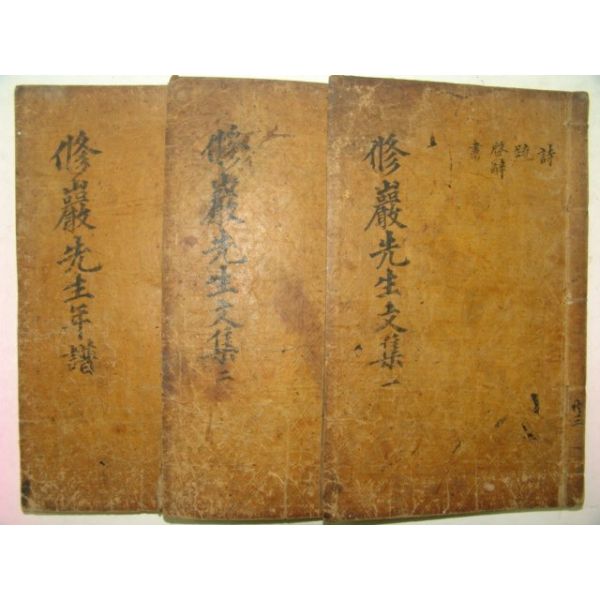 修巖先生文集一
詩
疏
啓辭
書
修巖先生文集二
修巖先生年譜